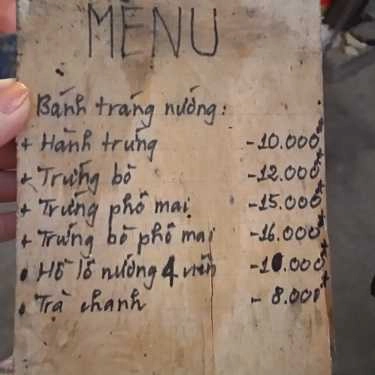 MENU
Bánh tráng nướng:
+ Hành trứng -10.000đ
+ Trứng bò -12.000đ
+ Trứng phô mai -15.000đ
+ Trứng bò phô mai -16.000đ
• Hồ lô nướng 4 viên -10.000đ
• Trà chanh - 8.000đ